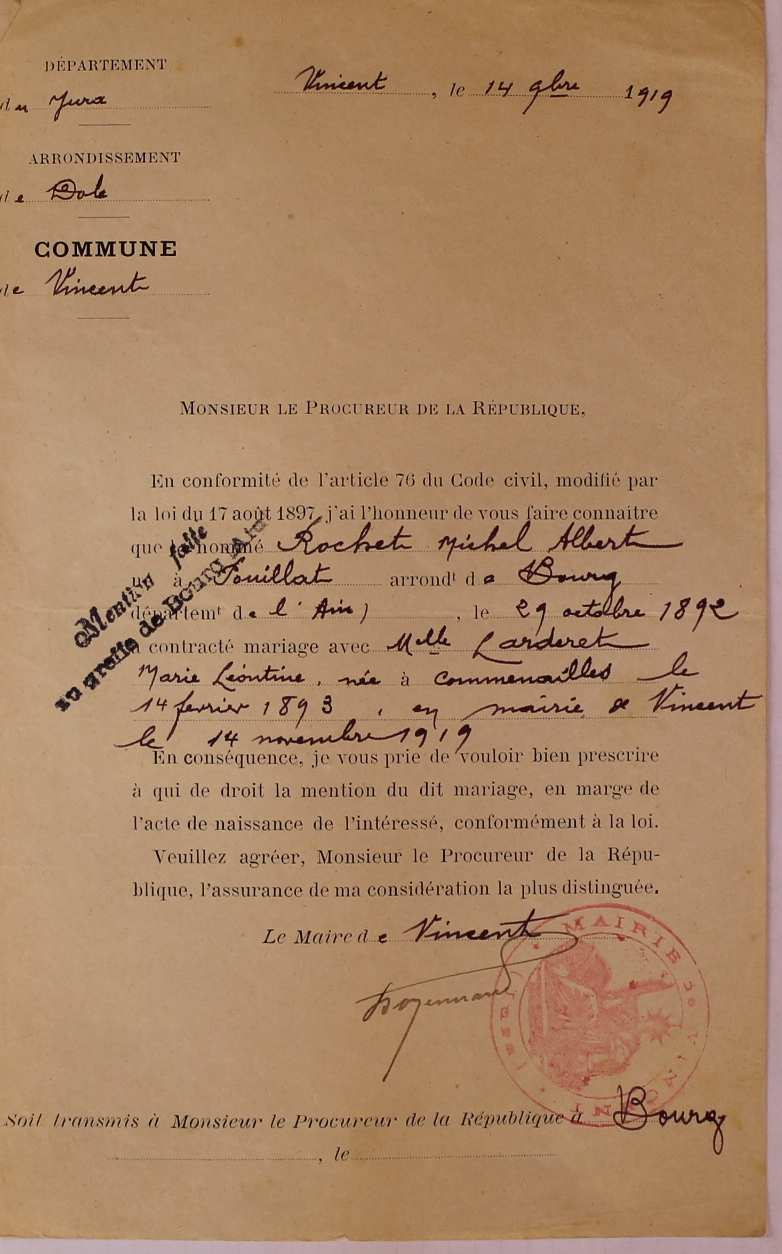 DÉPARTEMENT
du Jura
Vincent, le 14 9bre 1919
ARRONDISSEMENT
de Dole
COMMUNE
de Vincent
MONSIEUR LE PROCUREUR DE LA RÉPUBLIQUE,
En conformité de l'article 76 du Code civil, modifié par
la loi du 17 août 1897, j'ai l'honneur de vous faire connaître
que le nommé Rochet Michel Albert
à Pouillat arrondt de Bourg
départemt de l'Ain), le 29 octobre 1892
a contracté mariage avec Melle Larderet
Marie Léontine, née à Commenailles le
14 février 1893, en mairie de Vincent
le 14 novembre 1919
En conséquence, je vous prie de vouloir bien prescrire
à qui de droit la mention du dit mariage, en marge de
l'acte de naissance de l'intéressé, conformément à la loi.
Veuillez agréer, Monsieur le Procureur de la Répu-
blique, l'assurance de ma considération la plus distinguée.
Mention faite
au greffe de Bourg
Le Maire de Vincent
MAIRIE DE VINCENT
(Jura)
Soit transmis à Monsieur le Procureur de la République à Bourg
, le